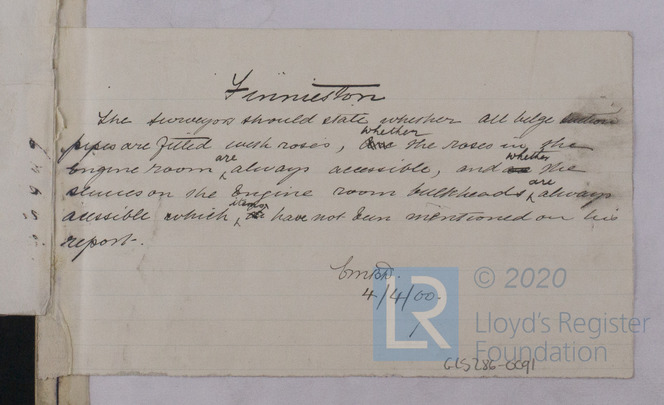 Finnieston
The Surveyor should state whether all bilge suction
pipes are fitted with roses, whether the roses in the
Engine room are always accessible, and whether the
sluices on the Engine room bulkheads are always
acessible which items have not been mentioned on his
report.
4/4/00.
LR
© 2020
Lloyd's Register
Foundation
GLS286-0091